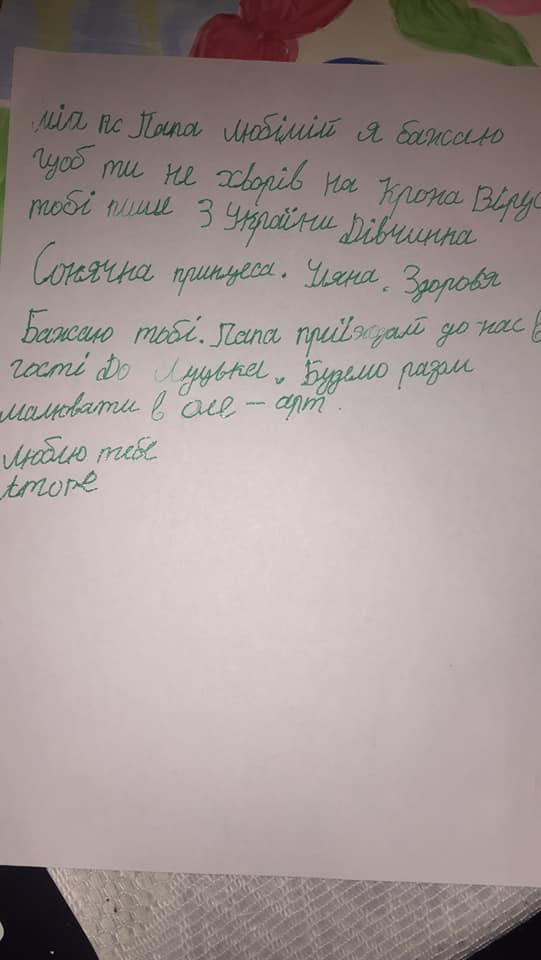 мій Папа любімій я бажаю
щоб ти не хворів на Крона Вірус
тобі пише З України Дівчинна
Сонячна принцеса. Уляна. Здоровя
Бажаю тобі. Папа приїжджай до нас в
гості До Луцька. Будемо разом
малювати в оле-арт.
люблю тебе
Amore